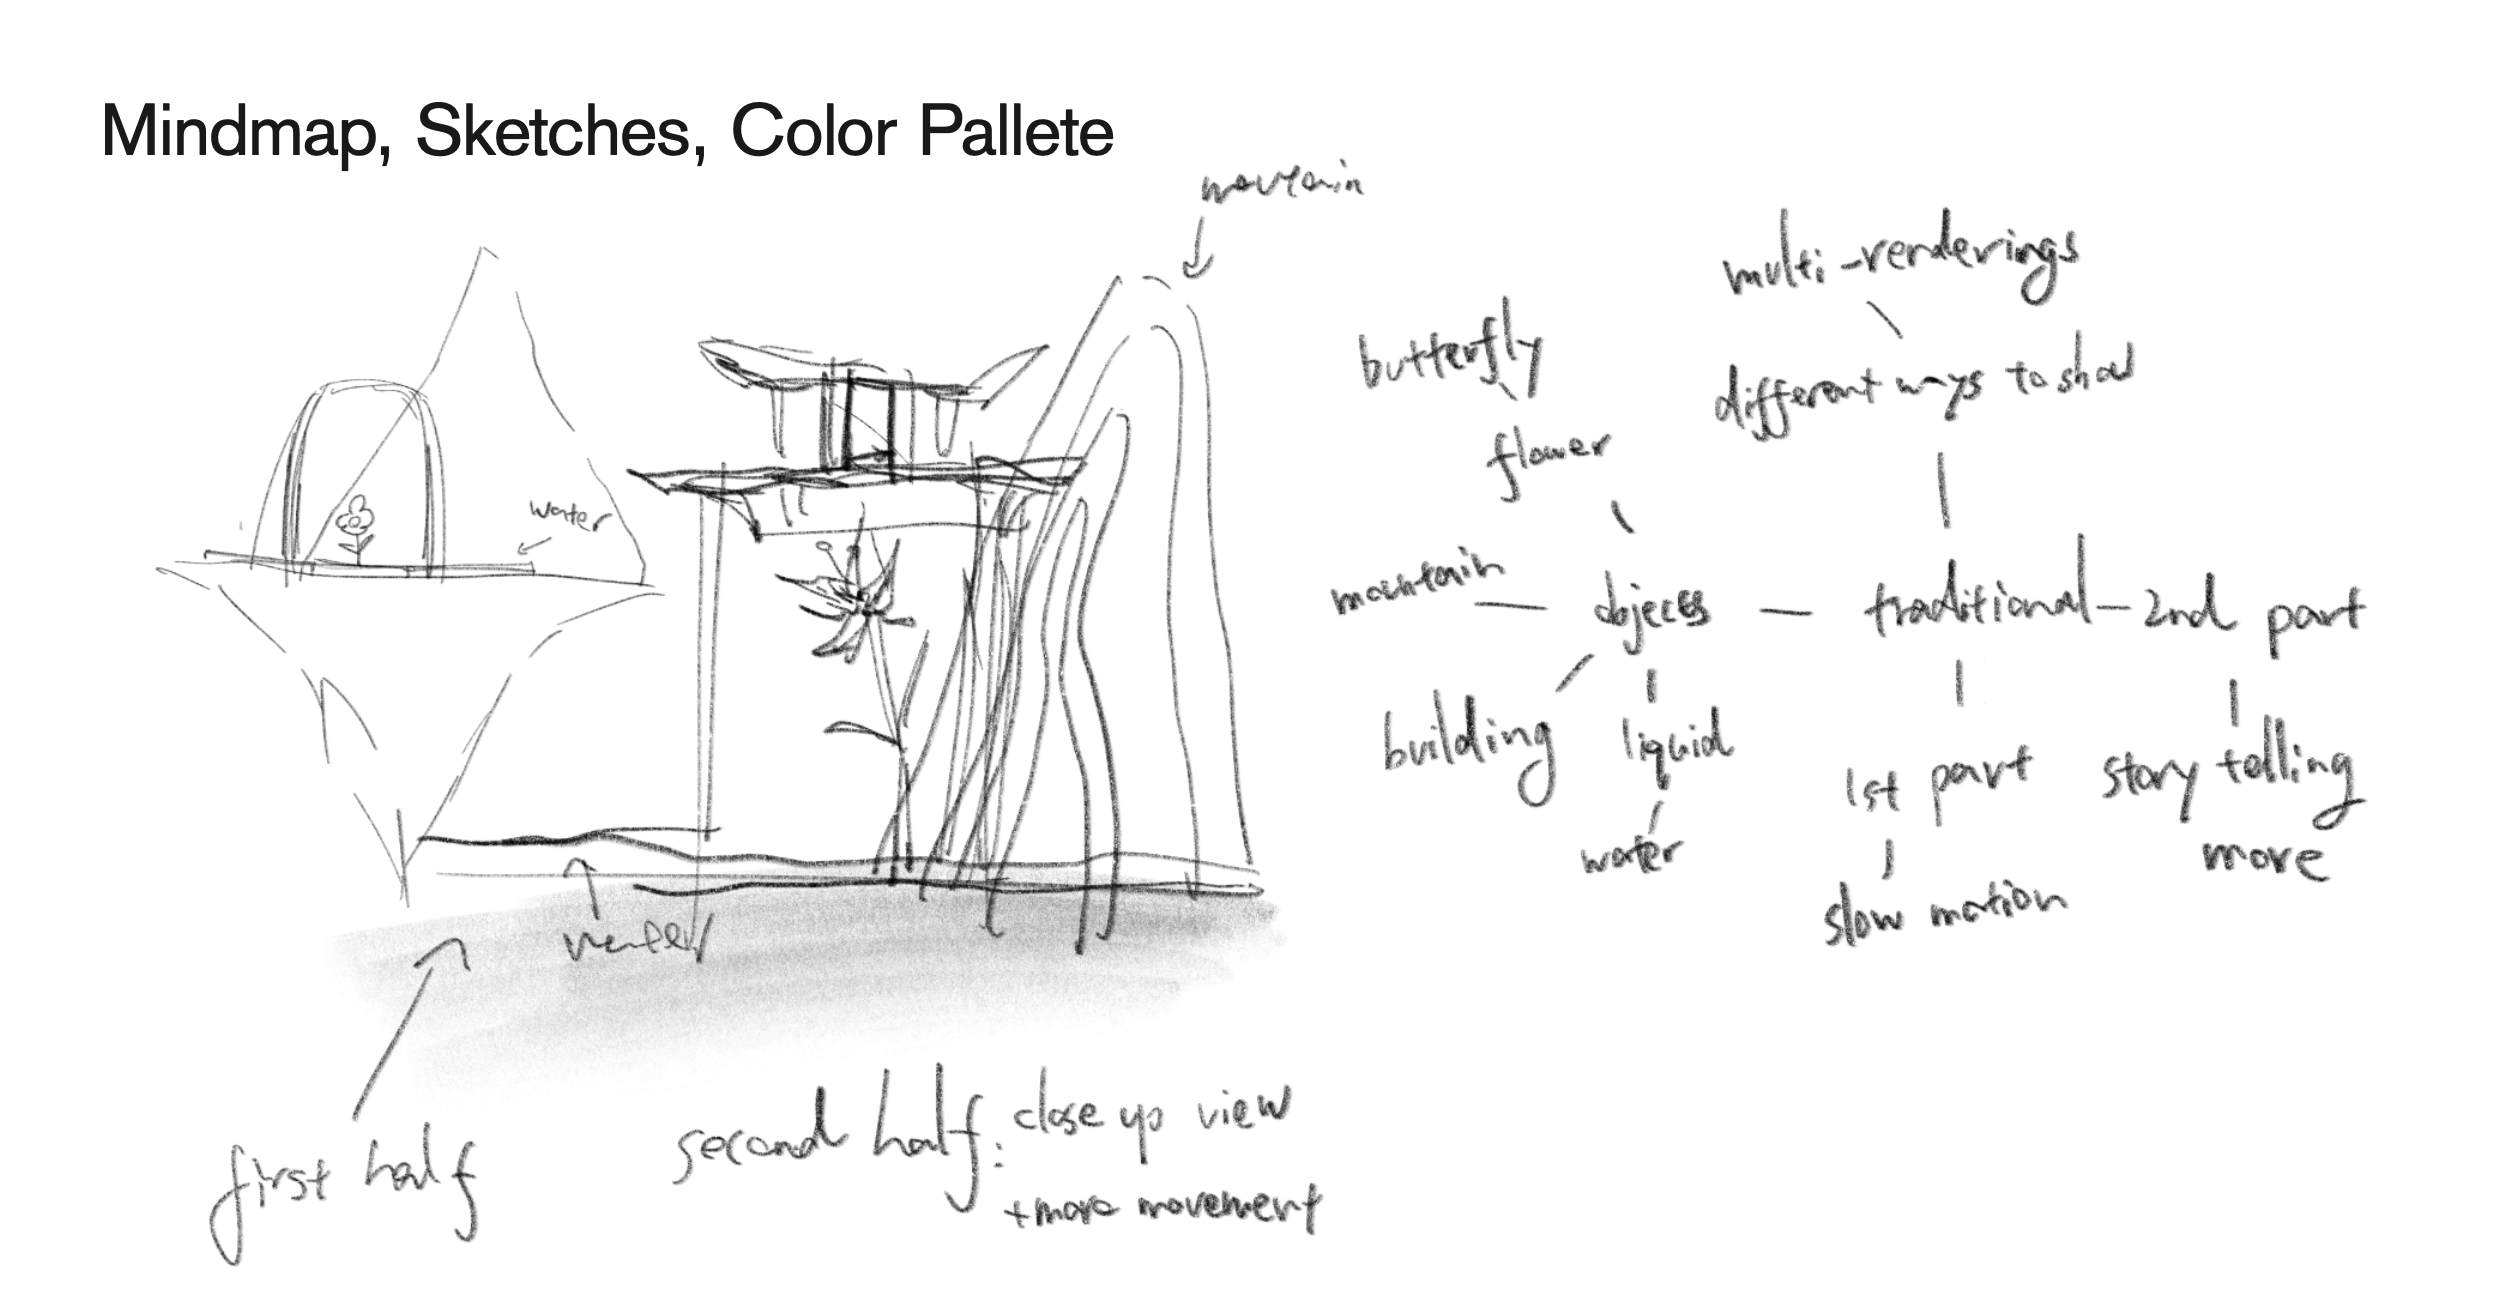 Mindmap, Sketches, Color Pallete
mountain
water
water
first half
second half: close up view
+more movement
multi-renderings
different ways to show
butterfly
flower
mountain
objects
traditional
2nd part
building
liquid
water
1st part
slow motion
story telling
more